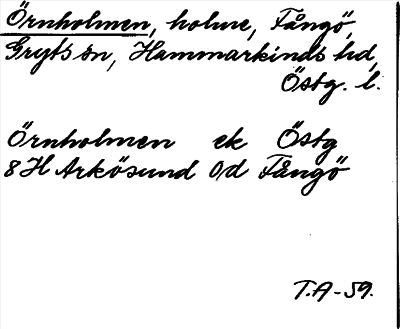 Örnholmen, holme, Fångö,
Gryts sn, Hammarkinds hd,
Östg. l.
Örnholmen ek Östg
8H Arkösund 0d Fångö
T.A-59.